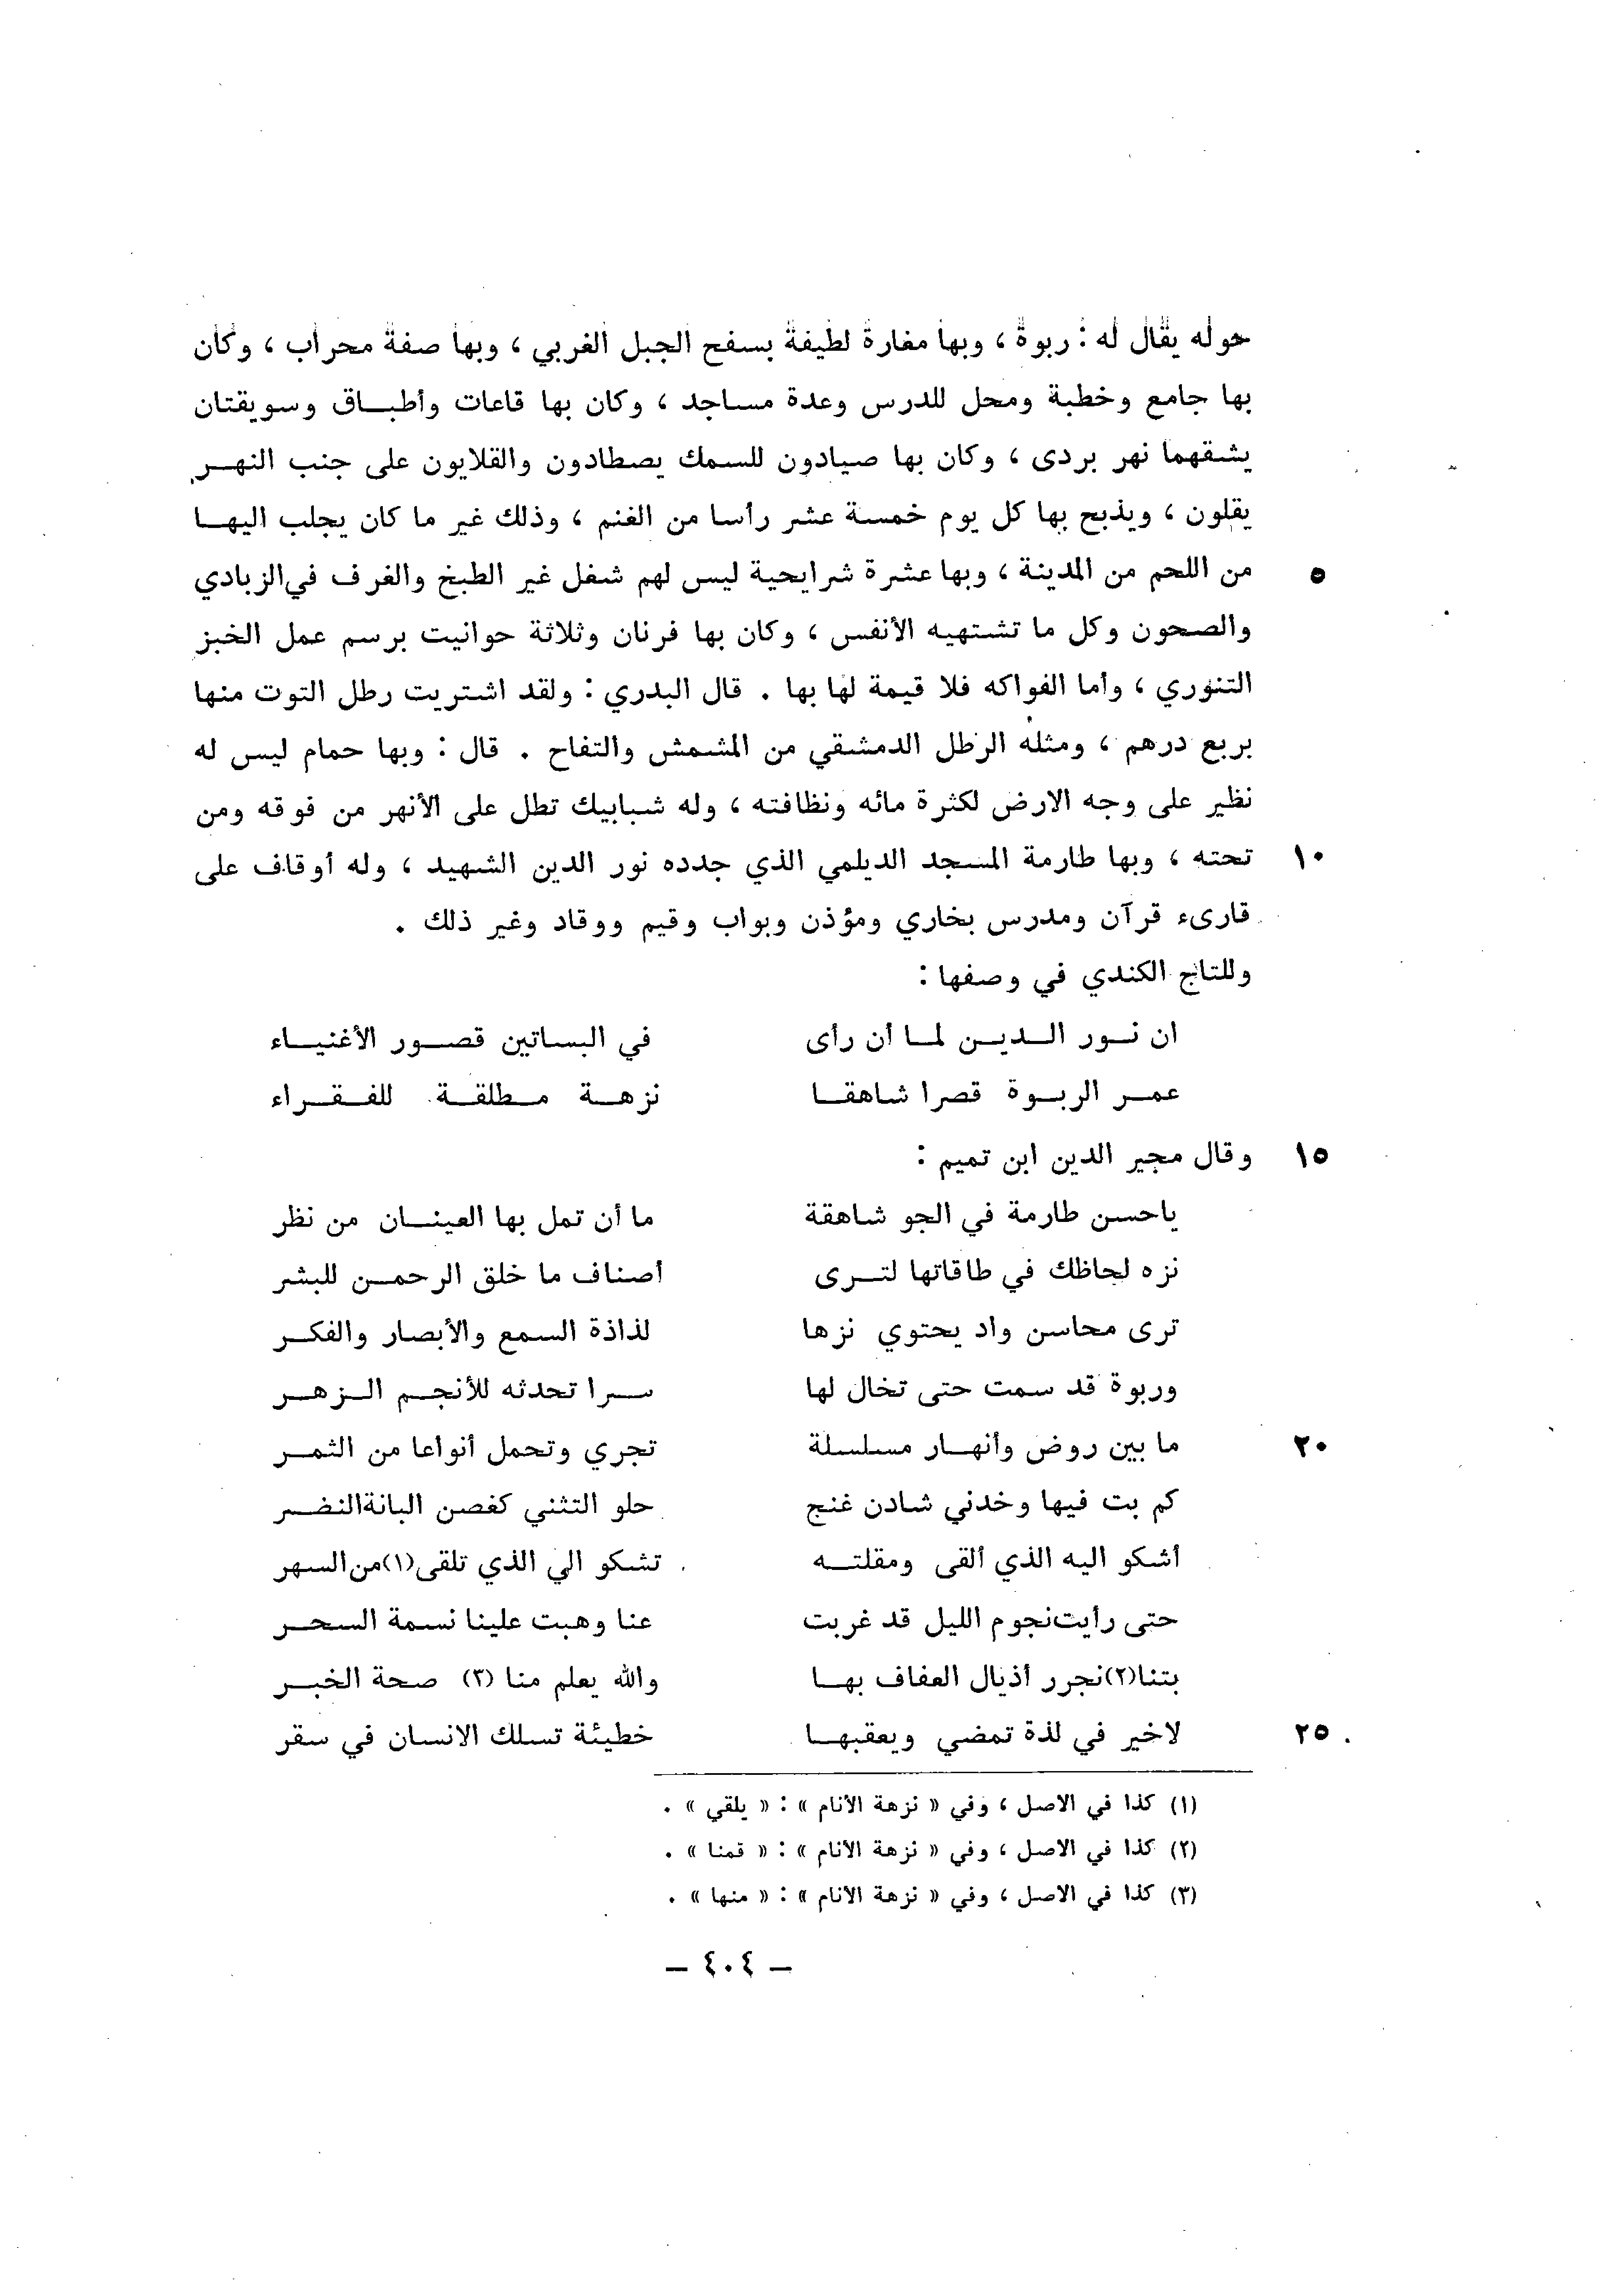 حوله يقال له : ربوة ، وبها مغارة لطيفة بسفح الجبل الغربي ، وبها صفة محراب ، وكان
بها جامع وخطبة ومحل للدرس وعدة مساجد ، وكان بها قاعات وأطباق وسويقتان
يشقهما نهر بردى ، وكان بها صيادون للسمك يصطادون والقلايون على جنب النهر
يقلون ، ويذبح بها كل يوم خمسة عشر رأسا من الغنم ، وذلك غير ما كان يجلب اليها
من اللحم من المدينة ، وبها عشرة شرايحية ليس لهم شغل غير الطبخ والغرف في الزبادي ٥
والصحون وكل ما تشتهيه الأنفس ، وكان بها فرنان وثلاثة حوانيت برسم عمل الخبز
التنوري ، وأما الفواكه فلا قيمة لها بها . قال البدري : ولقد اشتريت رطل التوت منها
بربع درهم ، ومثله الرطل الدمشقي من المشمش والتفاح . قال : وبها حمام ليس له
نظير على وجه الارض لكثرة مائه ونظافته ، وله شبابيك تطل على الأنهر من فوقه ومن
تحته ، وبها طارمة المسجد الديلمي الذي جدده نور الدين الشهيد ، وله أوقاف على ١٠
قارىء قرآن ومدرس بخاري ومؤذن وبواب وقيم ووقاد وغير ذلك .
وللتاج الكندي في وصفها :
ان نور الدين لما أن رأى في البساتين قصور الأغنياء
عمر الربوة قصرا شاهقا نزهة مطلقة للفقراء
وقال مجير الدين ابن تميم : ١٥
ياحسن طارمة في الجو شاهقة ما أن تمل بها العينان من نظر
نزه لحاظك في طاقاتها لترى أصناف ما خلق الرحمن للبشر
ترى محاسن واد يحتوي نزها لذاذة السمع والأبصار والفكر
وربوة قد سمت حتى تخال لها سرا تحدثه للأنجم الزهر
ما بين روض وأنهار مسلسلة تجري وتحمل أنواعا من الثمر ٢٠
كم بت فيها وخدني شادن غنج حلو التثني كغصن البانة النضر
أشكو اليه الذي ألقى ومقلته تشكو الي الذي تلقى(١)من السهر
حتى رأيت نجوم الليل قد غربت عنا وهبت علينا نسمة السحر
بتنا(٢)نجرر أذيال العفاف بها والله يعلم منا (٣) صحة الخبر
لاخير في لذة تمضي ويعقبها خطيئة تسلك الانسان في سقر ٢٥
(١) كذا في الاصل ، وفي « نزهة الأنام » : « يلقي » .
(٢) كذا في الاصل ، وفي « نزهة الأنام » : « قمنا » .
(٣) كذا في الاصل ، وفي « نزهة الأنام » : « منها » .
– ٤٠٤ –